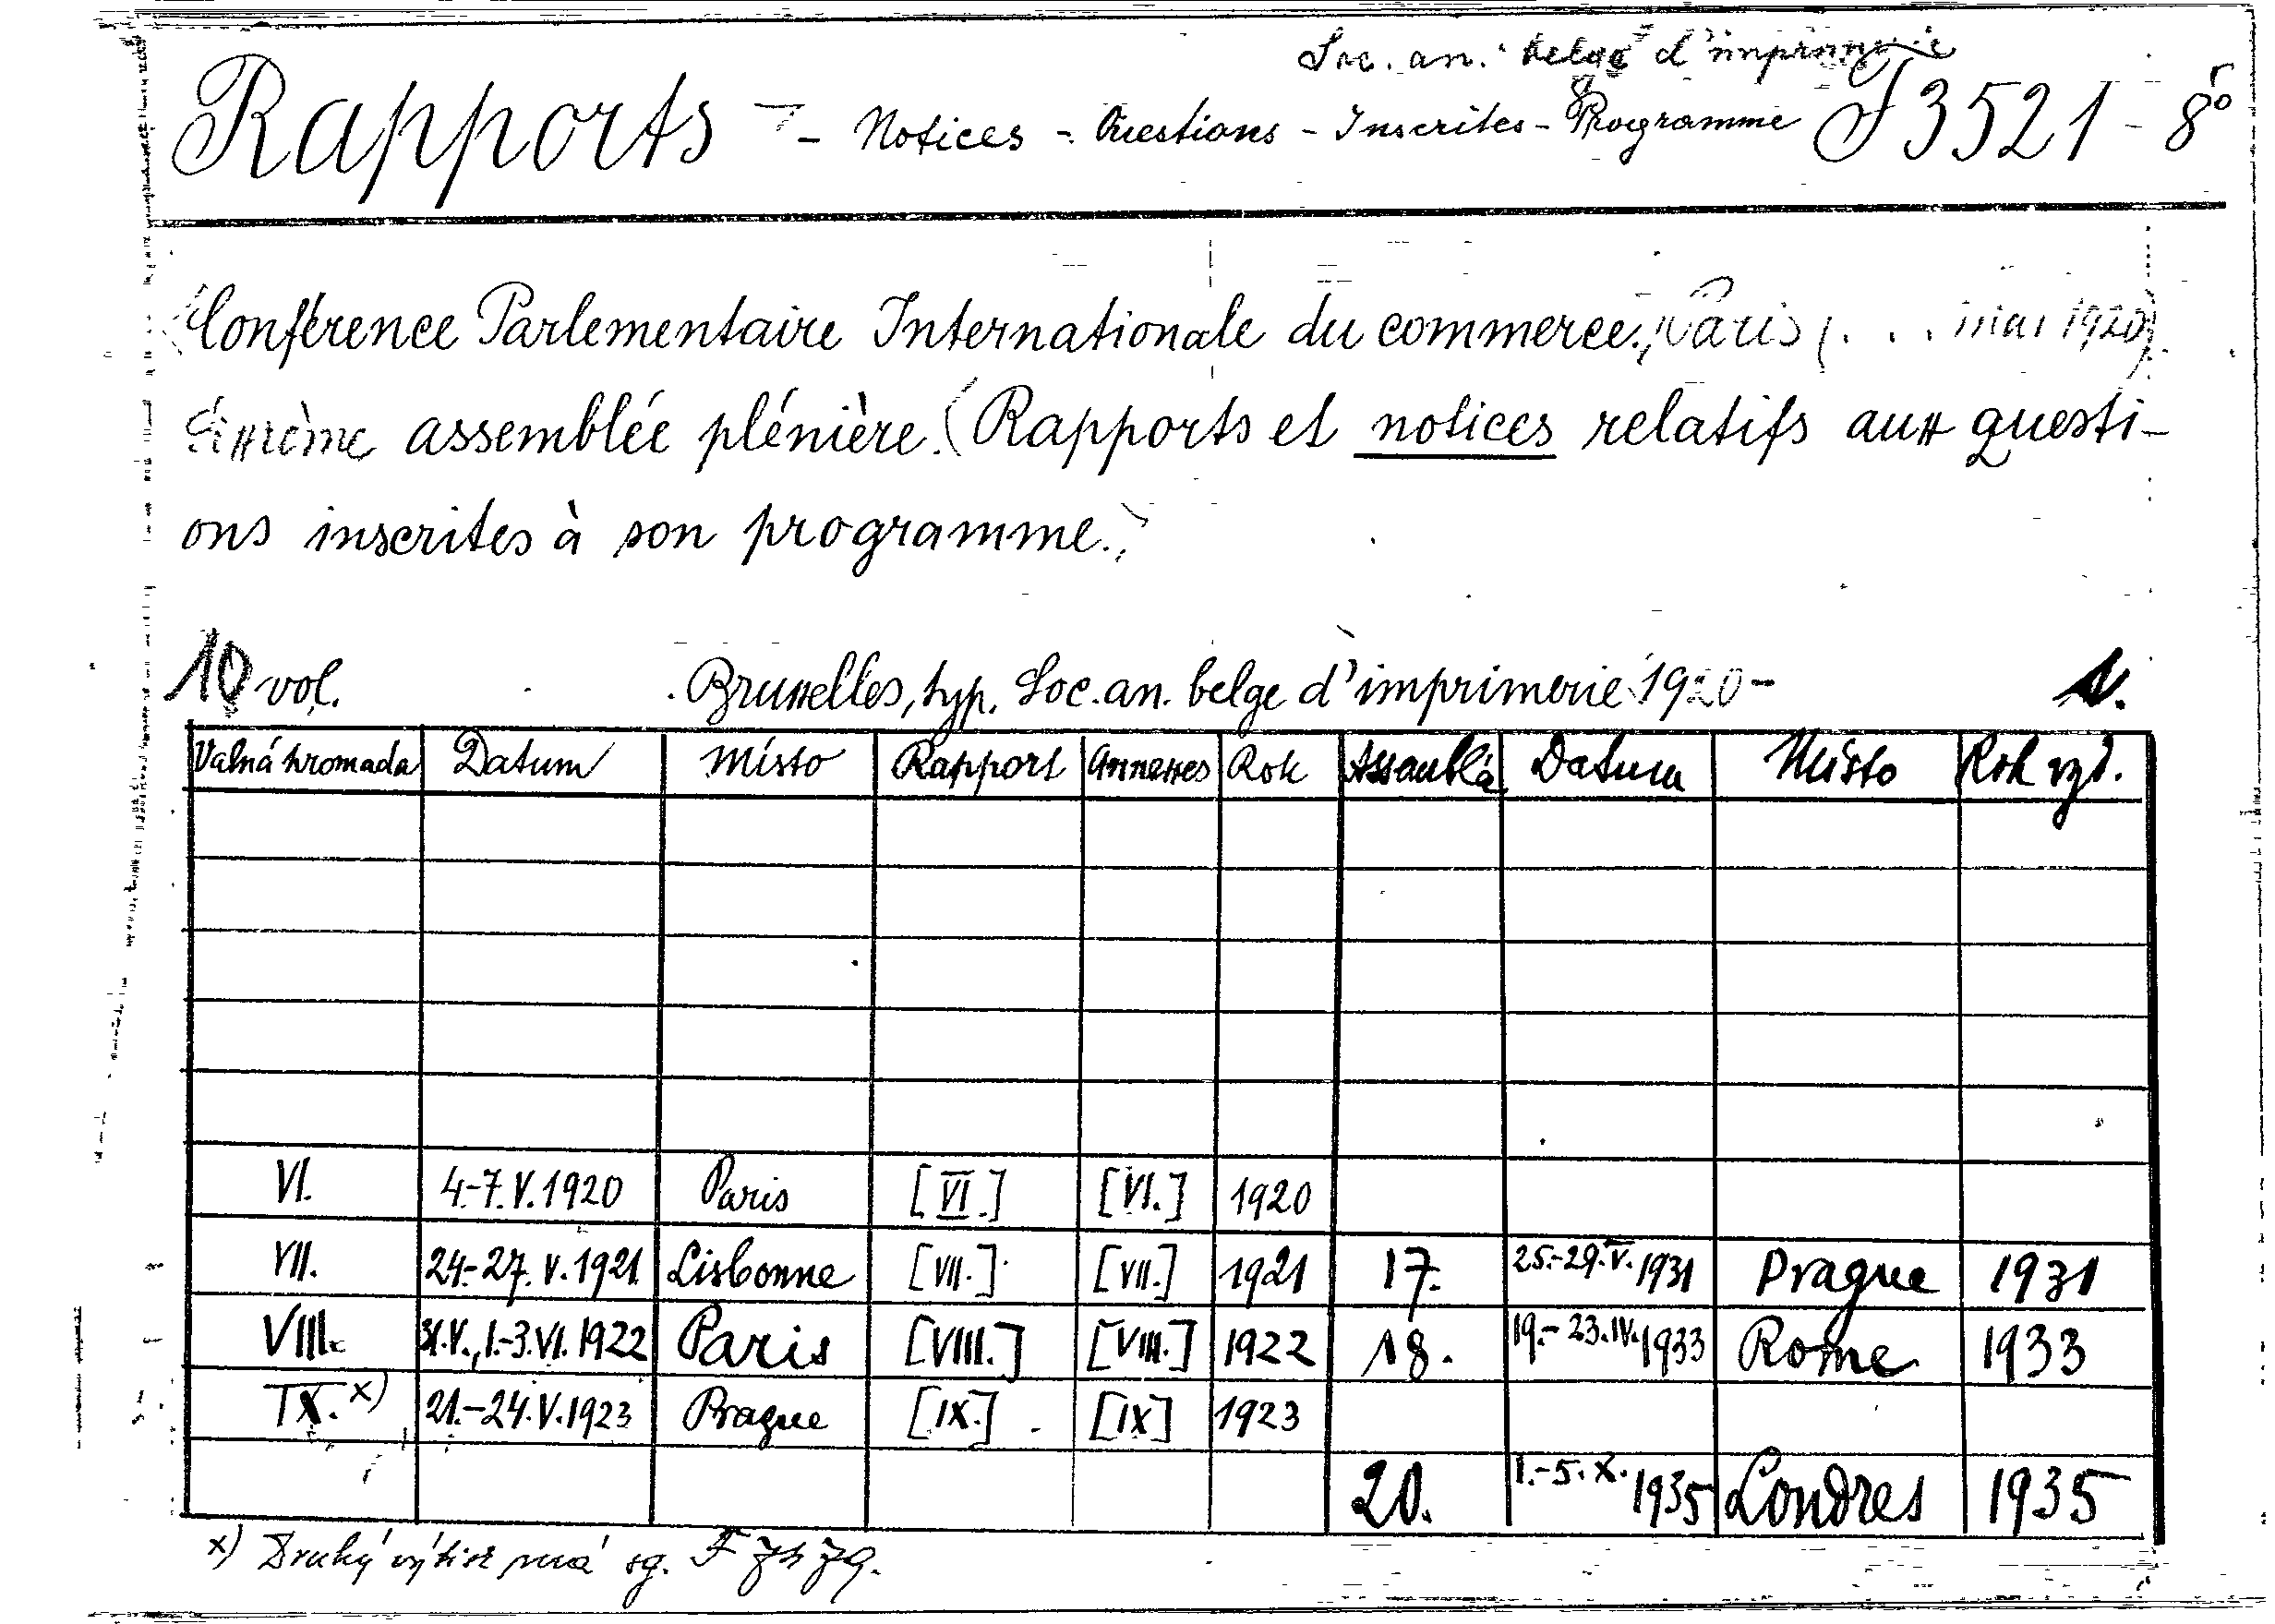 Soc. an. belge d'imprimerie
Rapports - Notices - Questions - Inscrites - Programme F 3521 - 8°
Conférence Parlementaire Internationale du commerce, Paris (. . . mai 1920)
assemblée plénière. (Rapports et notices relatifs aux questi-
ons inscrites à son programme.)
10 vol. Bruxelles, typ. Soc. an. belge d'imprimerie 1920-
Valná hromada Datum Místo Rapport Annexes Rok Datum Místo Rok vyd.
VI. 4.-7.V.1920 Paris [VI.] [VI.] 1920
VII. 24.-27.V.1921 Lisbonne [VII.] [VII.] 1921 17. 25.-29.V.1931 Prague 1931
VIII. 31.V.,1.-3.VI.1922 Paris [VIII.] [VIII.] 1922 18. 19.-23.IV.1933 Rome 1933
IX. x) 21.-24.V.1923 Prague [IX.] [IX] 1923
20. 1.-5.X.1935 Londres 1935
x) Druhý výtisk má sg. F